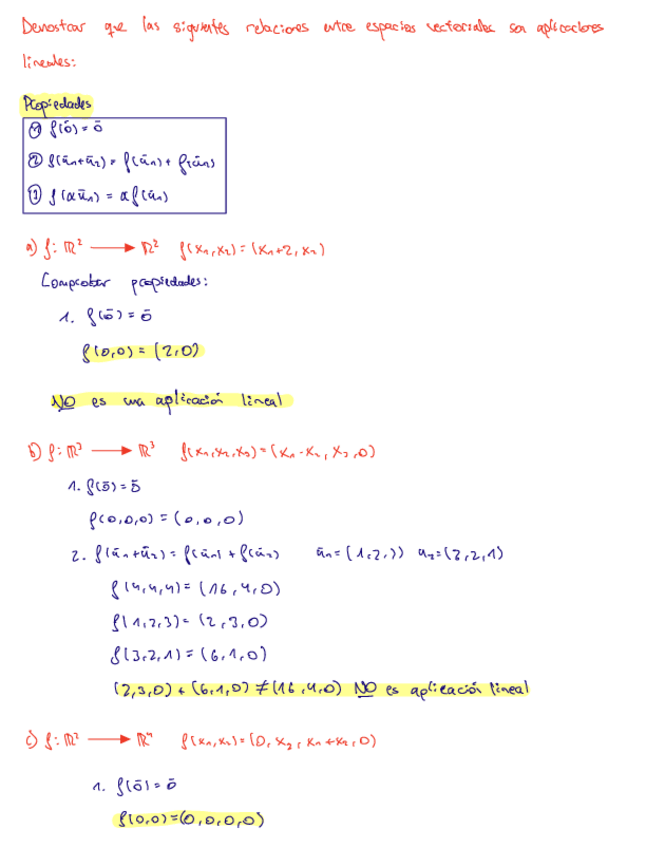 Demostrar que las siguientes relaciones entre espacios vectoriales son aplicaciones
lineales:
Propiedades
① f(ō) = ō
② f(ū₁+ū₂) = f(ū₁) + f(ū₂)
③ f(αū₁) = αf(ū₁)
a) f: ℝ² → ℝ² f(x₁,x₂) = (x₁+2, x₂)
Comprobar propiedades:
1. f(ō) = ō
f(0,0) = (2,0)
NO es una aplicación lineal
b) f: ℝ³ → ℝ³ f(x₁,x₂,x₃) = (x₁·x₂, x₃, 0)
1. f(ō) = ō
f(0,0,0) = (0,0,0)
2. f(ū₁+ū₂) = f(ū₁) + f(ū₂) ū₁=(1,2,3) u₂=(3,2,1)
f(4,4,4) = (16,4,0)
f(1,2,3) = (2,3,0)
f(3,2,1) = (6,1,0)
(2,3,0) + (6,1,0) ≠ (16,4,0) NO es aplicación lineal
c) f: ℝ² → ℝ⁴ f(x₁,x₂) = (0, x₂, x₁+x₂, 0)
1. f(ō) = ō
f(0,0) = (0,0,0,0)